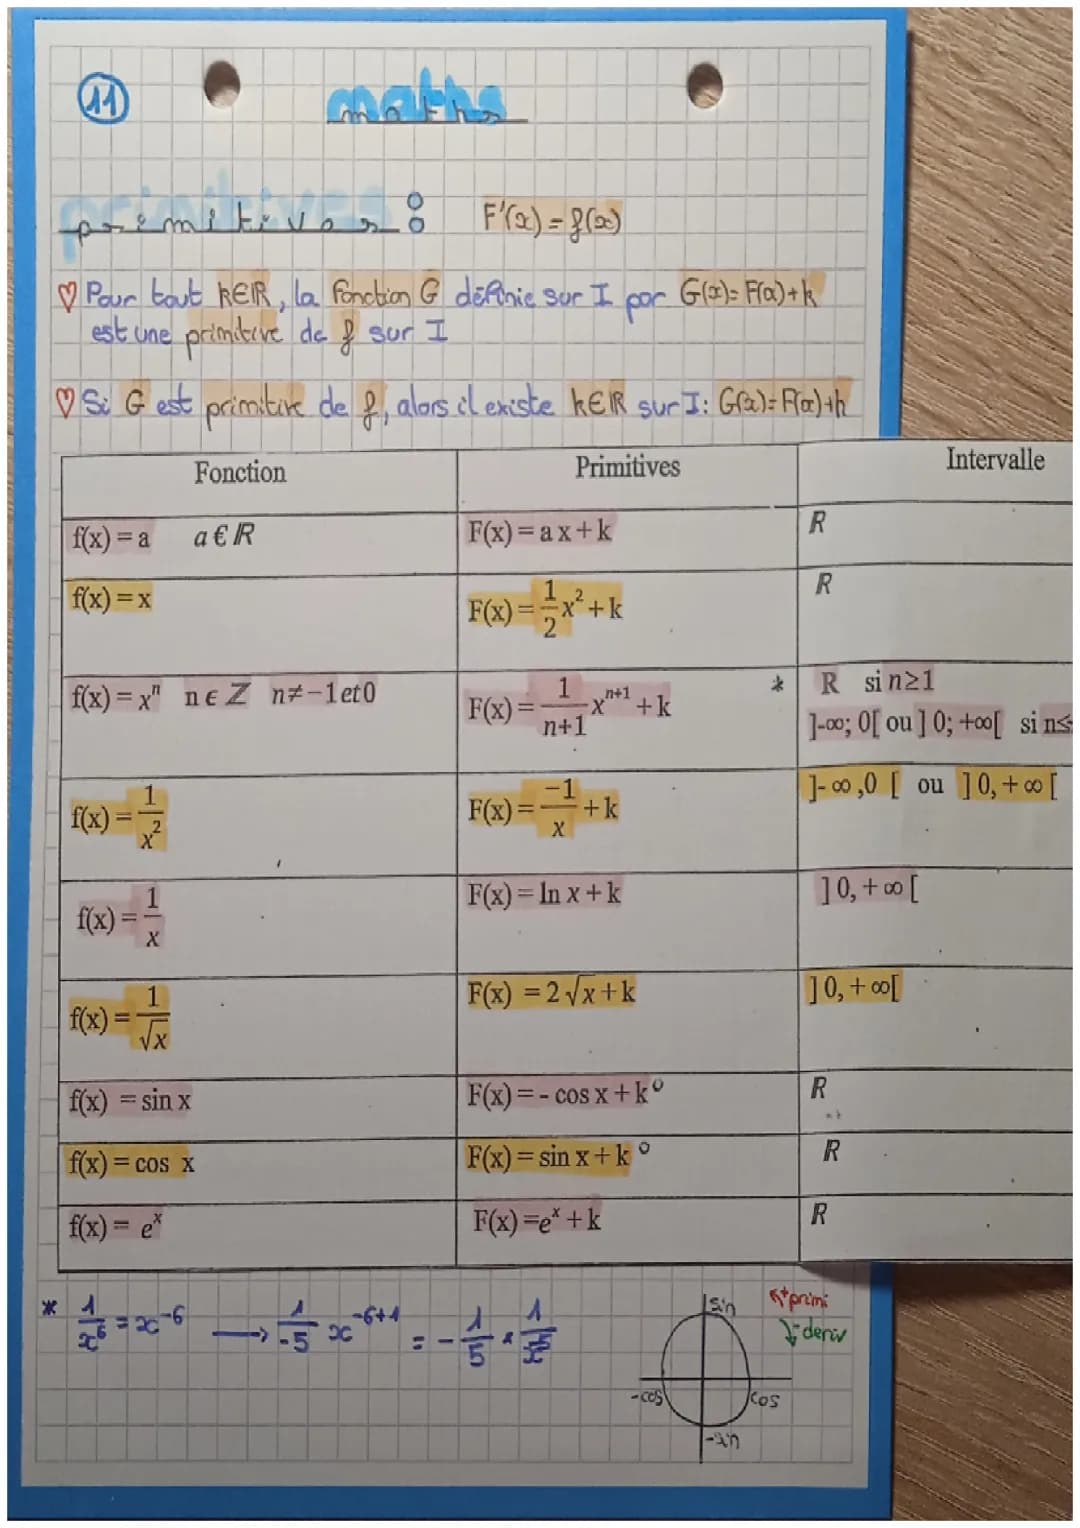 11
maths
primitives : F'(x) = f(x)
♡ Pour tout k∈ℝ, la fonction G définie sur I par G(x)= F(x)+k
est une primitive de f sur I
♡ Si G est primitive de f, alors il existe k∈ℝ sur I: G(x)= F(x)+k
Fonction Primitives Intervalle
f(x) = a a € ℝ F(x) = a x + k ℝ
f(x) = x F(x) = 1/2 x² + k ℝ
f(x) = xⁿ n ∈ ℤ n ≠ −1 et 0 F(x) = 1/(n+1) xⁿ⁺¹ + k * ℝ si n≥1
]-∞; 0[ ou ] 0; +∞[ si n≤
f(x) = 1/x² F(x) = −1/x + k ]- ∞ ,0 [ ou ] 0, + ∞ [
f(x) = 1/x F(x) = ln x + k ] 0, + ∞ [
f(x) = 1/√x F(x) = 2 √x + k ] 0, + ∞[
f(x) = sin x F(x) = - cos x + k ° ℝ
f(x) = cos x F(x) = sin x + k ° ℝ
f(x) = eˣ F(x) = eˣ + k ℝ
* 1/x⁶ = x⁻⁶ → 1/-5 x⁻⁶⁺¹ = - 1/5 × 1/x⁵
sin
+ primi
- deriv
-cos cos
-sin